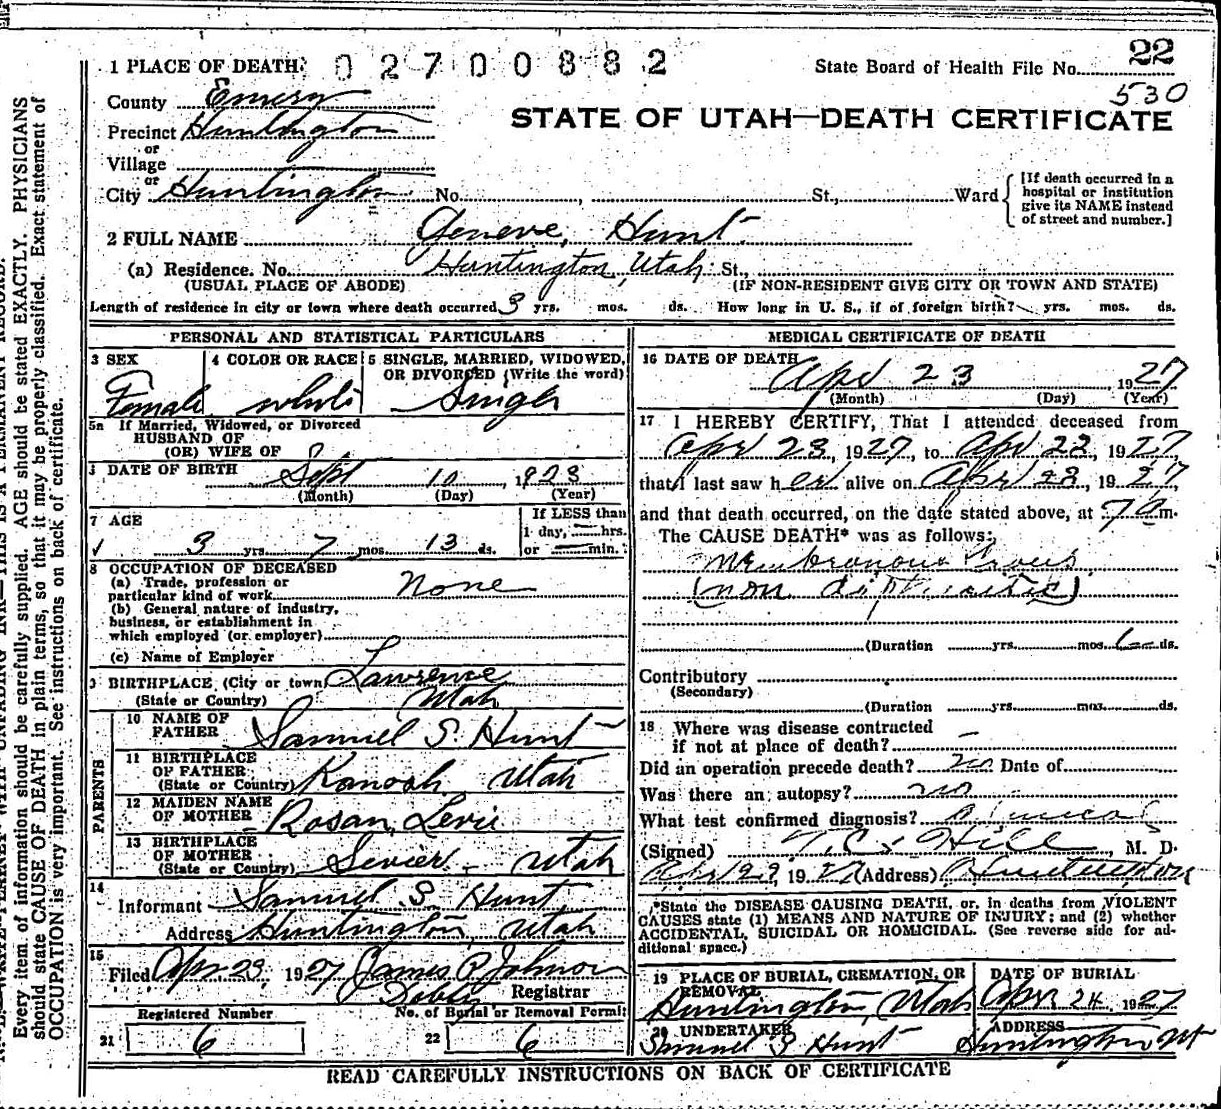 22
1 PLACE OF DEATH: 02700882 State Board of Health File No.
530
County Emery
STATE OF UTAH—DEATH CERTIFICATE
Precinct Huntington
or
Village
or
City Huntington No. , St., Ward
[If death occurred in a
hospital or institution
give its NAME instead
of street and number.]
2 FULL NAME Geneve, Hunt
(a) Residence. No. Huntington, Utah St.,
(USUAL PLACE OF ABODE) (IF NON-RESIDENT GIVE CITY OR TOWN AND STATE)
Length of residence in city or town where death occurred 3 yrs. mos. ds. How long in U. S., if of foreign birth? yrs. mos. ds.
PERSONAL AND STATISTICAL PARTICULARS
3 SEX 4 COLOR OR RACE 5 SINGLE, MARRIED, WIDOWED,
OR DIVORCED (Write the word)
Female white Single
5a If Married, Widowed, or Divorced
HUSBAND OF
(OR) WIFE OF
DATE OF BIRTH Sept 10, 1923
(Month) (Day) (Year)
7 AGE
If LESS than
1 day, hrs.
or min.
3 yrs. 7 mos. 13 ds.
8 OCCUPATION OF DECEASED
(a) Trade, profession or
particular kind of work None
(b) General nature of industry,
business, or establishment in
which employed (or employer)
(c) Name of Employer
9 BIRTHPLACE (City or town) Lawrence
(State or Country) Utah
PARENTS
10 NAME OF
FATHER Samuel S. Hunt
11 BIRTHPLACE
OF FATHER
(State or Country) Kanosh, Utah
12 MAIDEN NAME
OF MOTHER Rosan, Levi
13 BIRTHPLACE
OF MOTHER
(State or Country) Sevier - Utah
14
Informant Samuel S. Hunt
Address Huntington, Utah
15
Filed Apr 23, 1927 James P. Johnson
Registrar
Registered Number No. of Burial or Removal Permit
21 6 22 6
MEDICAL CERTIFICATE OF DEATH
16 DATE OF DEATH
Apr 23, 1927
(Month) (Day) (Year)
17 I HEREBY CERTIFY, That I attended deceased from
Apr 23, 1927, to Apr 23, 1927,
that I last saw her alive on Apr 23, 1927
and that death occurred, on the date stated above, at 7 a m.
The CAUSE DEATH* was as follows:
Membranous Croup
(non diphtheritic)
(Duration yrs. mos. ds.
Contributory
(Secondary)
(Duration yrs. mos. ds.
18 Where was disease contracted
if not at place of death? -
Did an operation precede death? no Date of
Was there an autopsy? no
What test confirmed diagnosis? Clinical
(Signed) T. C. Hill, M. D.
1927 (Address) Huntington
*State the DISEASE CAUSING DEATH, or, in deaths from VIOLENT
CAUSES state (1) MEANS AND NATURE OF INJURY; and (2) whether
ACCIDENTAL, SUICIDAL OR HOMICIDAL. (See reverse side for ad-
ditional space.)
19 PLACE OF BURIAL, CREMATION, OR
REMOVAL
Huntington, Utah
DATE OF BURIAL
Apr. 24, 1927
20 UNDERTAKER
Samuel S Hunt
ADDRESS
Huntington Ut
READ CAREFULLY INSTRUCTIONS ON BACK OF CERTIFICATE
Every item of information should be carefully supplied. AGE should be stated EXACTLY. PHYSICIANS
should state CAUSE OF DEATH in plain terms, so that it may be properly classified. Exact statement of
OCCUPATION is very important. See instructions on back of certificate.